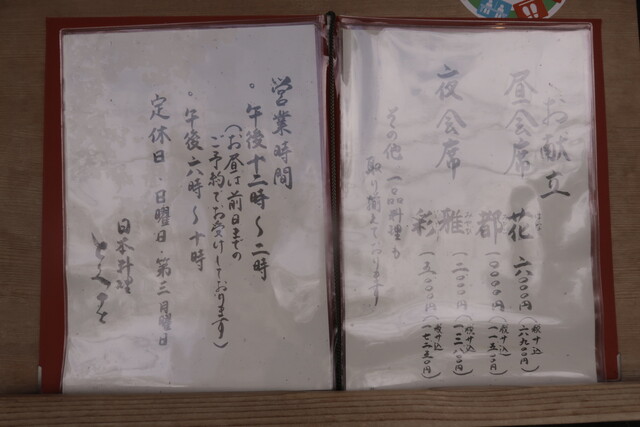 お献立
昼会席 花 六〇〇〇円(税サ込 六九〇〇円)
はな
都 一〇〇〇〇円(税サ込 一一五〇〇円)
夜会席 雅 一二〇〇〇円(税サ込 一三八〇〇円)
みやび
彩 一五〇〇〇円(税サ込 一七二五〇円)
その他 一品料理も
取り揃えております
営業時間
。午後十二時〜二時
(お昼は前日までの
ご予約でお受けしております)
。午後六時〜十時
定休日・日曜日 第三月曜日
日本料理